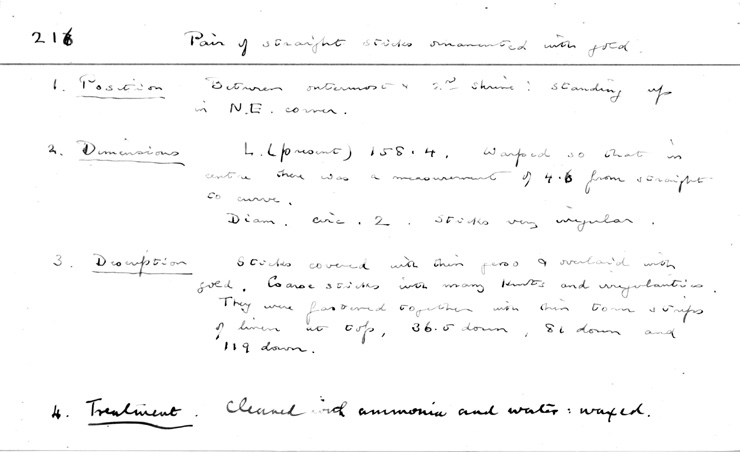 216 Pair of straight sticks ornamented with gold.
1. Position Between outermost & 2nd shrine: standing up
in N.E. corner.
2. Dimensions L. (present) 158.4. Warped so that in
centre there was a measurement of 4.6 from straight
to curve.
Diam. circ. 2. Sticks very irregular.
3. Description Sticks covered with thin gesso & overlaid with
gold. Coarse sticks with many knots and irregularities.
They were fastened together with thin torn strips
of linen at top, 36.5 down, 81 down and
119 down.
4. Treatment. Cleaned with ammonia and water: waxed.